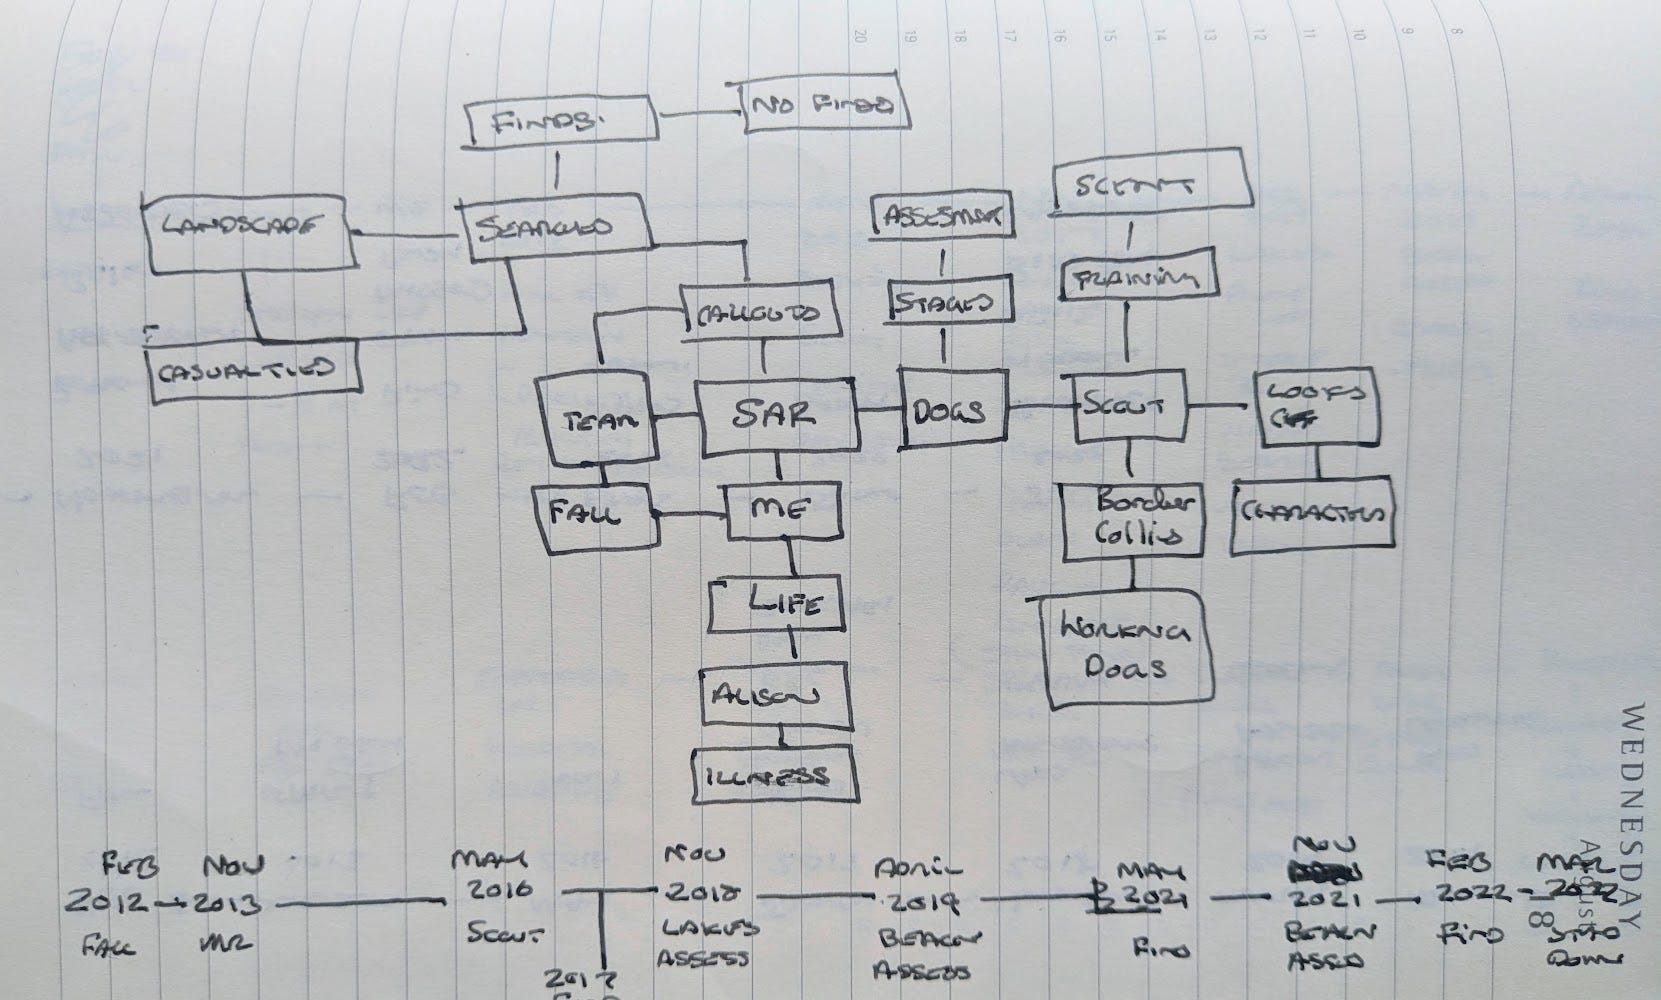 20 19 18 17 16 15 14 13 12 11 10 9 8
FINDS.
NO FINDS
SCENT
LANDSCAPE
SEARCHES
ASSESMENT
TRAINING
CALLOUTS
STAGES
CASUALTIES
TEAM
SAR
DOGS
SCOUT
LOOKS
FALL
ME
Border
Collies
CHARACTERS
LIFE
WORKING
DOGS
ALISON
ILLNESS
WEDNESDAY
August
18
FEB
2012
FALL
NOV
2013
MR
MAY
2016
SCOUT
2017
FIND
NOV
2018
LAKES
ASSESS
APRIL
2019
BEACON
ASSESS
MAY
2021
FIND
NOV
2021
BEACON
ASSESS
FEB
2022
FIND
MAR
2022
DOWN